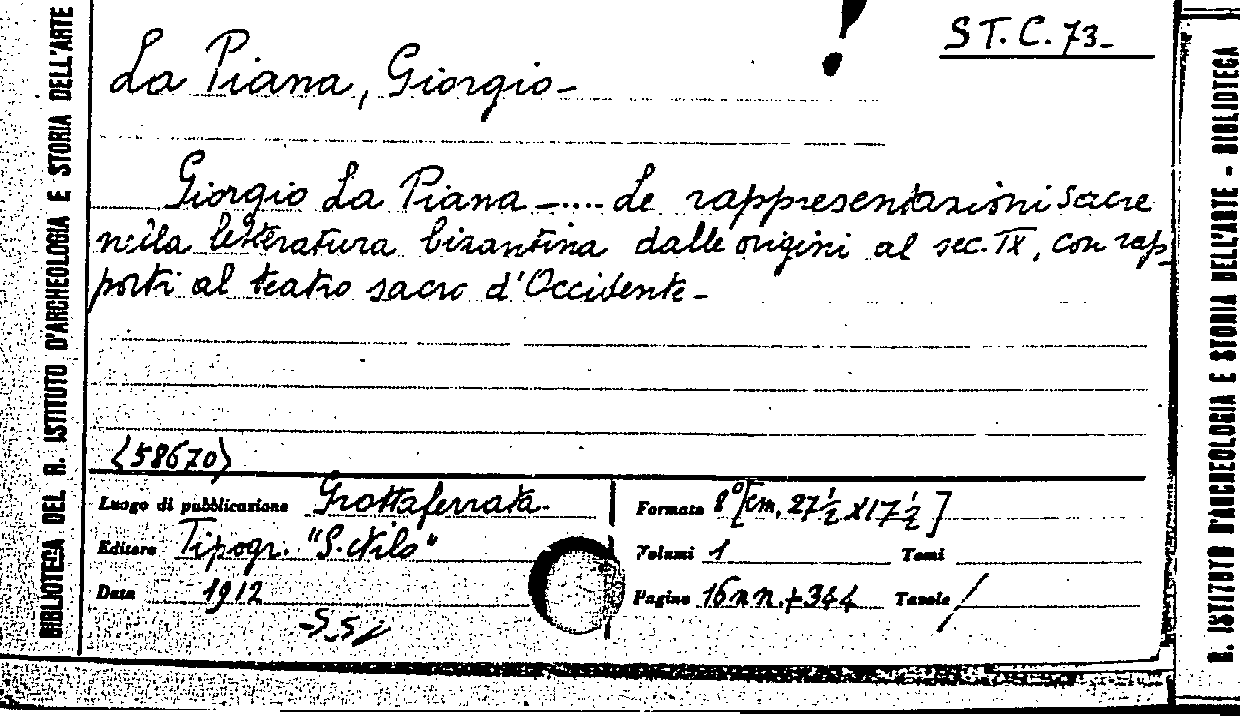 S T. C. 73-
La Piana, Giorgio-
Giorgio La Piana -.... Le rappresentazioni sacre
nella letteratura bizantina dalle origini al sec. IX, con rap-
porti al teatro sacro d'Occidente-
<58670>
Luogo di pubblicazione Grottaferrata-
Formato 8° [cm. 27½ x 17½]
Editore Tipogr. "S. Nilo"
Volumi 1 Tomi
Data 1912
Pagine 16 nn. + 344 Tavole /
BIBLIOTECA DEL R. ISTITUTO D'ARCHEOLOGIA E STORIA DELL'ARTE
R. ISTITUTO D'ARCEOLOGIA E STORIA DELL'ARTE - BIBLIOTECA